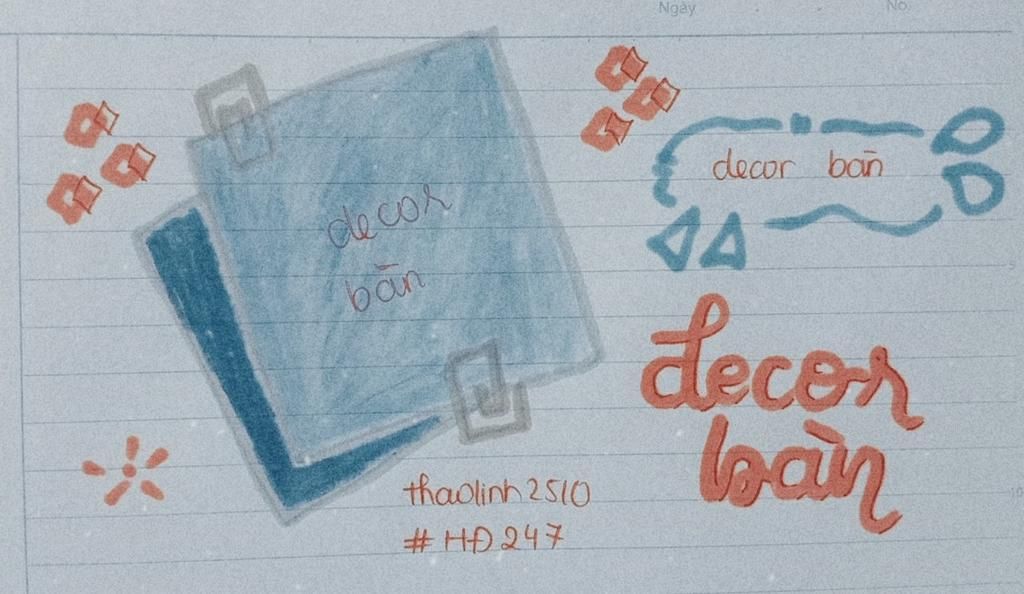 Ngày
No.
decor
bàn
decor bàn
decor
bàn
thaolinh2510
#HĐ247